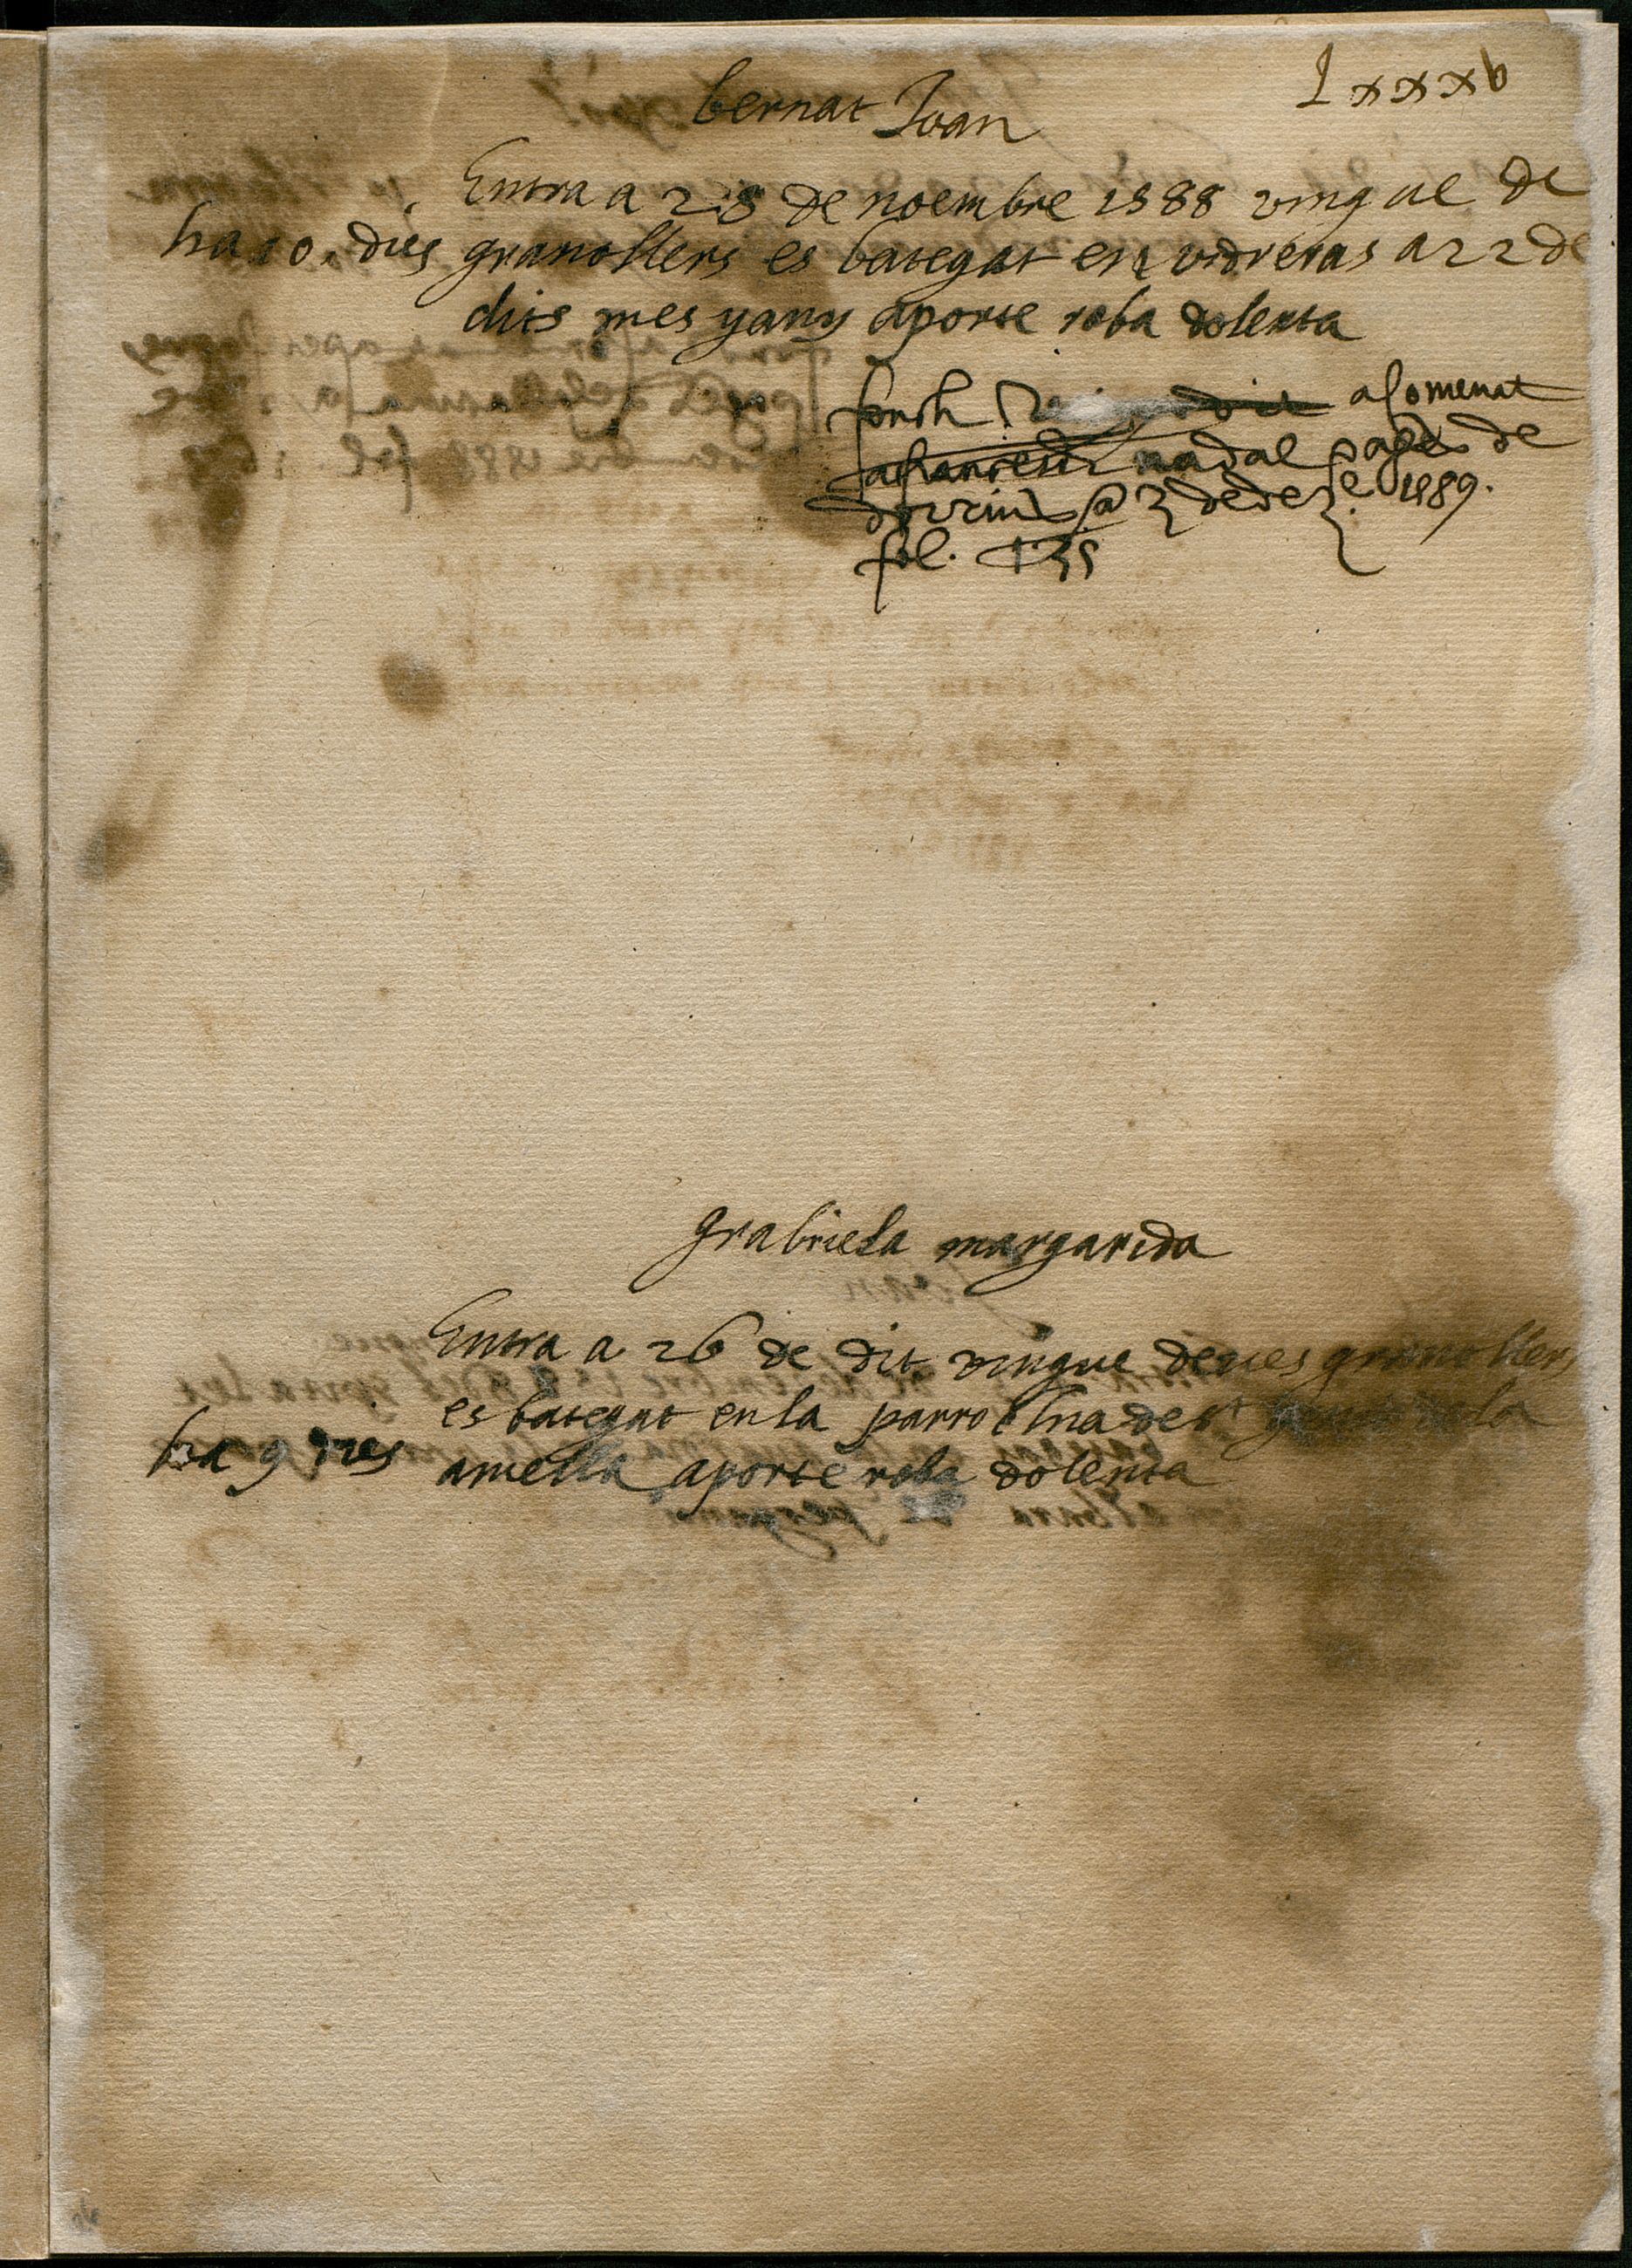 Lxxxb
bernat Joan
Entra a 28 de noembre 1588 vingue de
ha 10. dies granollers es bategat en vidreras a 22 de
dits mes y any aporte roba dolenta
fonch afomenat
a nadal pages de
a 3 de dezē. 1589.
fol. 135
grabriela margarida
Entra a 26 de dit vingue de granollers
es bategat en la parrochia de
ha 9 dies amella aporte roba dolenta